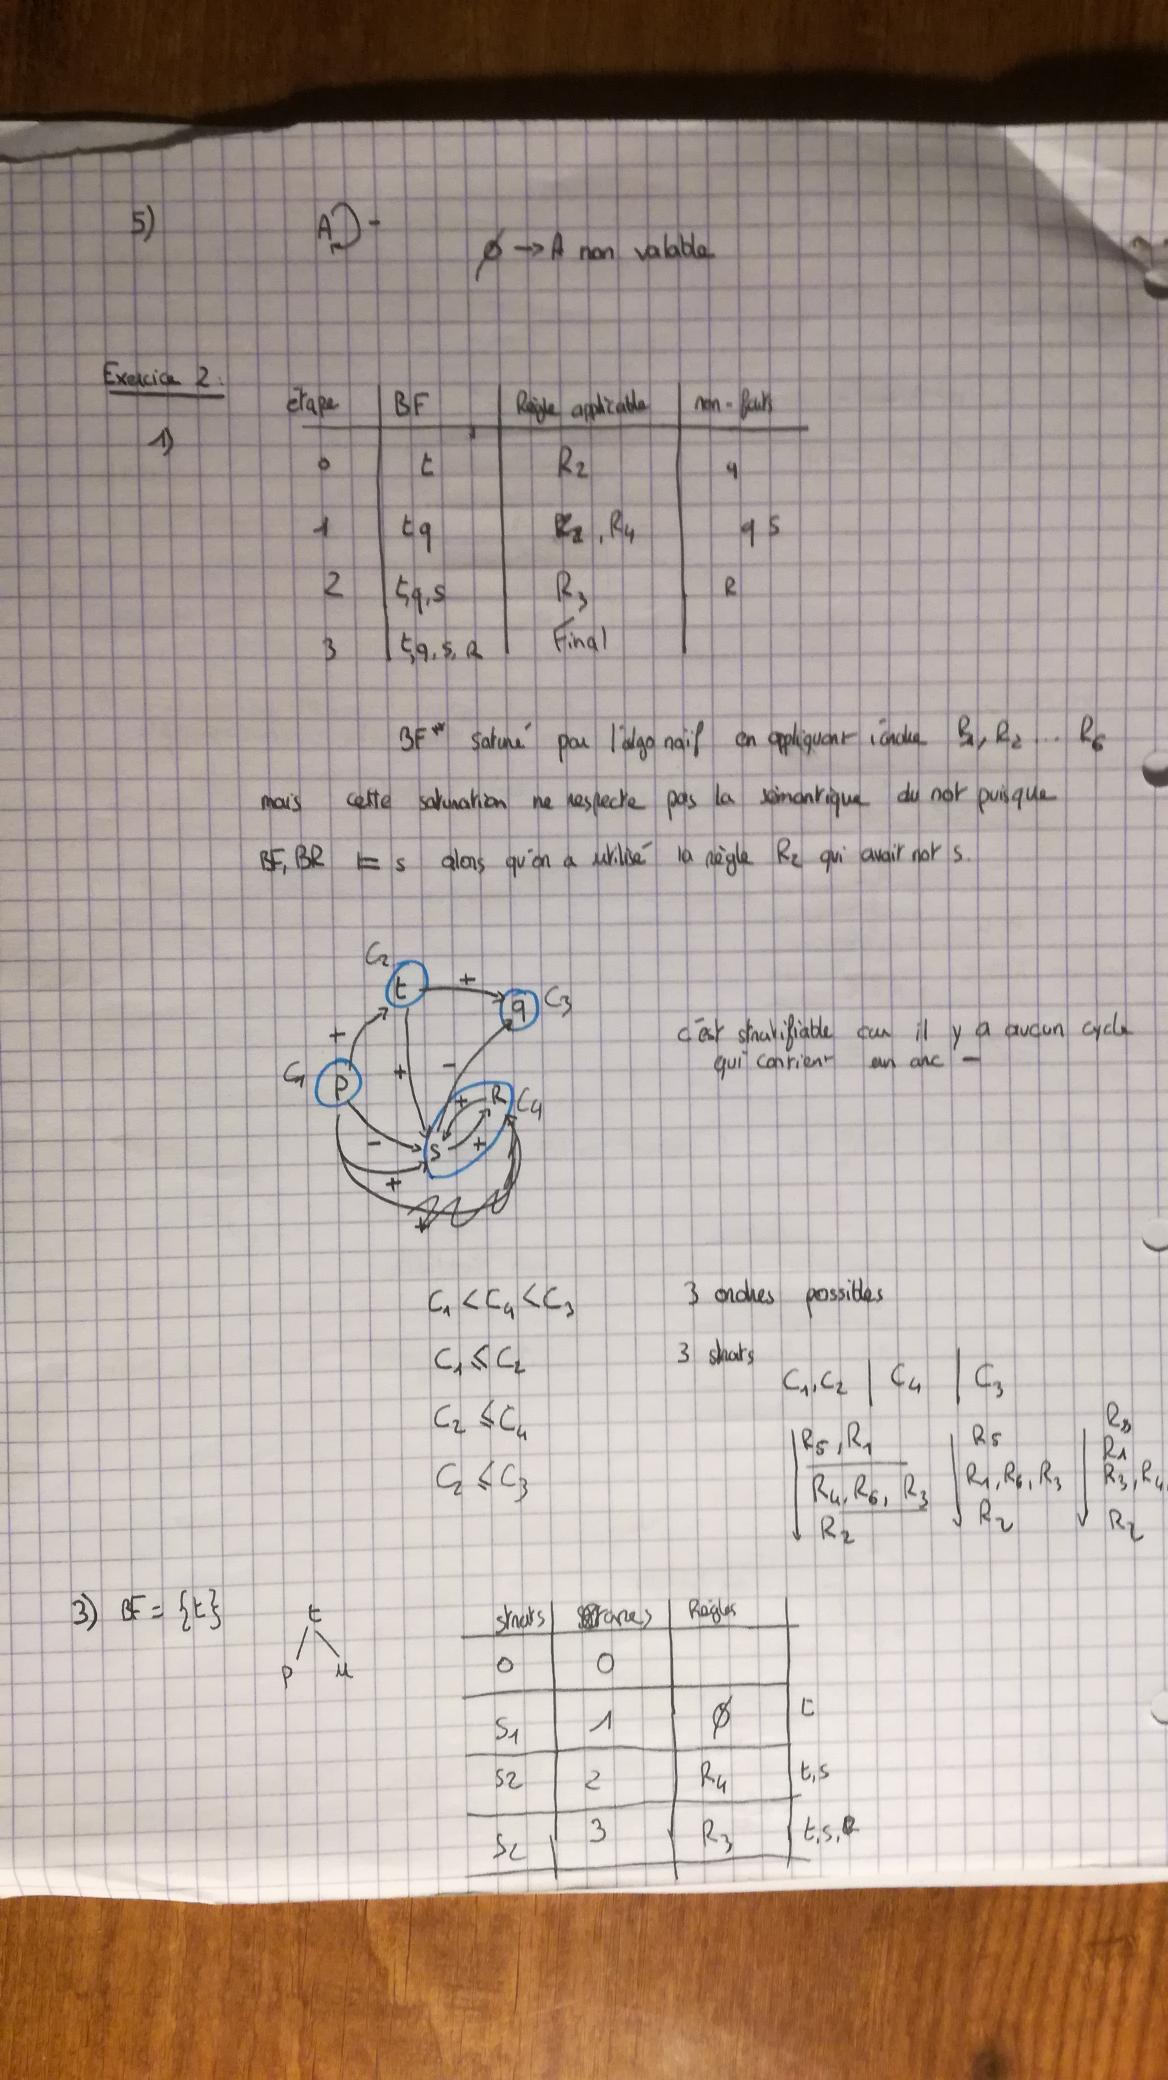 5) A -
∅ → A non valable
Exercice 2 :
1)
étape | BF | Règle applicable | non-faits
0 | t | R2 | q
1 | t q | , R4 | q s
2 | t,q,s | R3 | R
3 | t,q,s,R | Final
BF* saturé par l'algo naïf en appliquant l'ordre R1, R2 ... R6
mais cette saturation ne respecte pas la sémantique du not puisque
BF, BR ⊨ s alors qu'on a utilisé la règle R2 qui avait not s.
C2
t + q C3
+
C1 p + - + R C4
- s +
+
c'est stratifiable car il y a aucun cycle
qui contient un arc -
C1 < C4 < C3
C1 ≤ C2
C2 ≤ C4
C2 ≤ C3
3 ordres possibles
3 strats
C1, C2 | C4 | C3
R5, R1
R4, R6, R3
R2
R5
R1, R6, R3
R2
R1
R3, R4,
R2
3) BF = {t}
t
p u
strats | | Règles
0 | 0
S1 | 1 | ∅ | t
S2 | 2 | R4 | t,s
S2 | 3 | R3 | t,s,R